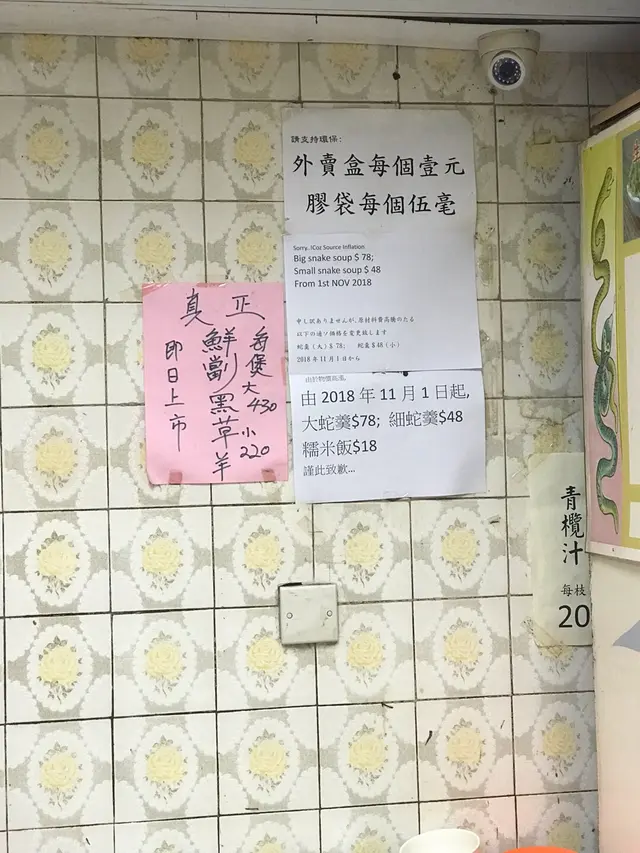 請支持環保:
外賣盒每個壹元
膠袋每個伍毫
Sorry..!Coz Source Inflation
Big snake soup $ 78;
Small snake soup $ 48
From 1st NOV 2018
申し訳ありませんが、原材料費高騰のたる
以下の通り価格を変更致します
蛇羹(大)$ 78; 蛇羹$ 48(小)
2018 年 11 月 1 日から
由於物價高漲,
由 2018 年 11 月 1 日起,
大蛇羹$78; 細蛇羹$48
糯米飯$18
謹此致歉...
真正
鮮劏黑草羊
每煲大430
小220
即日上市
青欖汁
每枝
20